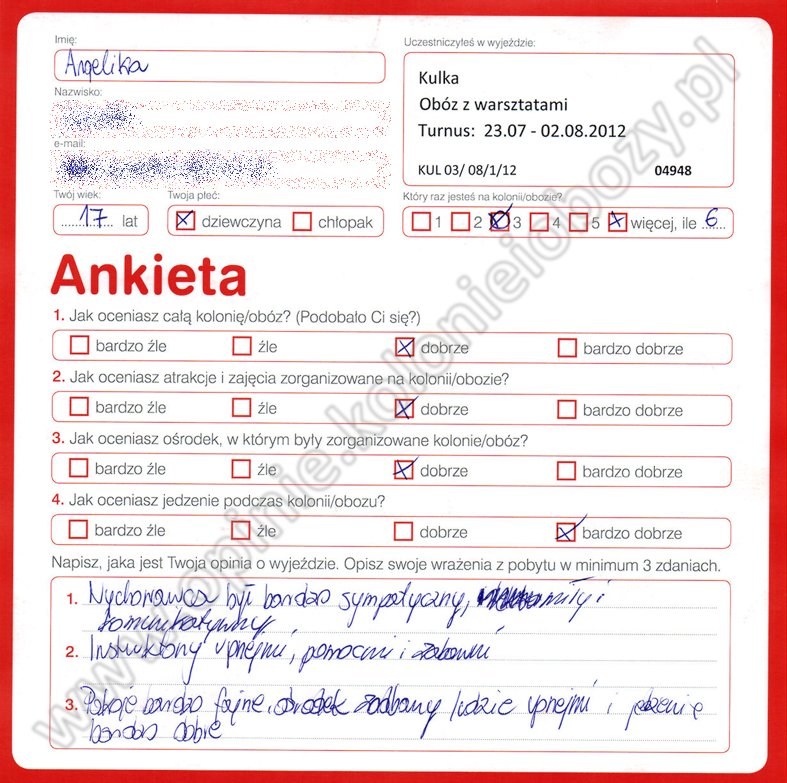 Imię:
Angelika
Uczestniczyłeś w wyjeździe:
Kulka
Obóz z warsztatami
Turnus: 23.07 - 02.08.2012
KUL 03/ 08/1/12 04948
Nazwisko:
e-mail:
Twój wiek:
17 lat
Twoja płeć:
dziewczyna chłopak
Który raz jesteś na kolonii/obozie?
1 2 3 4 5 więcej, ile 6
Ankieta
1. Jak oceniasz całą kolonię/obóz? (Podobało Ci się?)
bardzo źle źle dobrze bardzo dobrze
2. Jak oceniasz atrakcje i zajęcia zorganizowane na kolonii/obozie?
bardzo źle źle dobrze bardzo dobrze
3. Jak oceniasz ośrodek, w którym były zorganizowane kolonie/obóz?
bardzo źle źle dobrze bardzo dobrze
4. Jak oceniasz jedzenie podczas kolonii/obozu?
bardzo źle źle dobrze bardzo dobrze
Napisz, jaka jest Twoja opinia o wyjeździe. Opisz swoje wrażenia z pobytu w minimum 3 zdaniach.
1. Wychowawca był bardzo sympatyczny, miły i
komunikatywny
2. Instruktorzy uprejmi, pomocni i zabawni
3. Pokoje bardzo fajne, ośrodek zadbany ludzie uprejmi i jedzenie
bardzo dobre
www.opinie.kolonieiobozy.pl